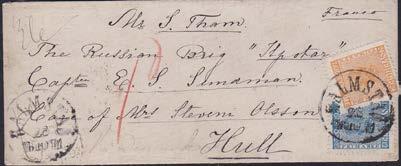 Mr S. Tham. Franco
The Russian Brig "Upstar"
Captn E. S. Simsman
Care of Mrs Stevens Olsson
Hull
HALMSTAD